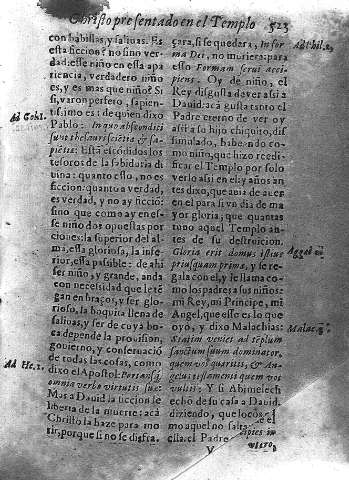 Christo presentado en el Templo 523
con babillas, y saliuas. Es
esta ficcion? no sino ver-
dad: esse niño en essa apa
riencia, verdadero niño
es, y es mas que niño? Si
si, varon perfeto, sapien-
tissimo es: de quien dixo
Pablo: In quo absconditi
sunt thesauri scientiæ & sa-
piẽtiæ: Està escõdidos los
tesoros de la sabiduria di
uina: quanto esso, no es
ficcion: quanto a verdad,
es verdad, y no ay ficciõ:
sino que como ay en es-
se niño dos opuestas por
ciones: la superior del al-
ma, essa gloriosa, la infe-
rior, essa passible: de ahi
ser niño, y grande, anda
con necessidad que le tẽ-
gan en braços, y ser glo-
rioso, la boquita llena de
saliuas, y ser de cuya bo-
ca depende la prouision,
gouierno, y conseruaciõ
de todas las cosas, como
dixo el Apostol: Portans
omnia verbo virtutis suæ:
Mas a Dauid la ficcion le
liberta de la muerte: acà
Christo la haze para mo
rir, porque si no se disfra-
Ad Colos.
Ad He. 1.
çara, si se quedara, In for
ma Dei, no muriera: para
esso Formam serui acci-
piens. Oy de niño, el
Rey disgusta de ver assi a
Dauid: acà gusta tanto el
Padre eterno de ver oy
assi a su hijo chiquito, dis
simulado, habeando co-
mo niño, que hizo reedi-
ficar el Templo por solo
verlo assi en el: y años an
tes dixo, que auia de auer
en el para si vn dia de ma
yor gloria; que quantas
tuuo aquel Templo an-
tes de su destruicion.
Gloria erit domus istius
plusquam prima, y se re-
gala con el, y se llama co-
mo los padres a sus niños:
mi Rey, mi Principe, mi
Angel, que esse es lo que
oyò, y dixo Malachias:
Statim veniet ad tẽplum
sanctum suum dominator,
quem vos quæritis, & An-
gelus testamenti quem vos
vultis: Y si Abimelech
echò de su casa a Dauid,
diziendo, que locos el
mo aquel no faltar
en ella. el Padre
V
Ad Phil. 2.
Agge
Malac. 3.